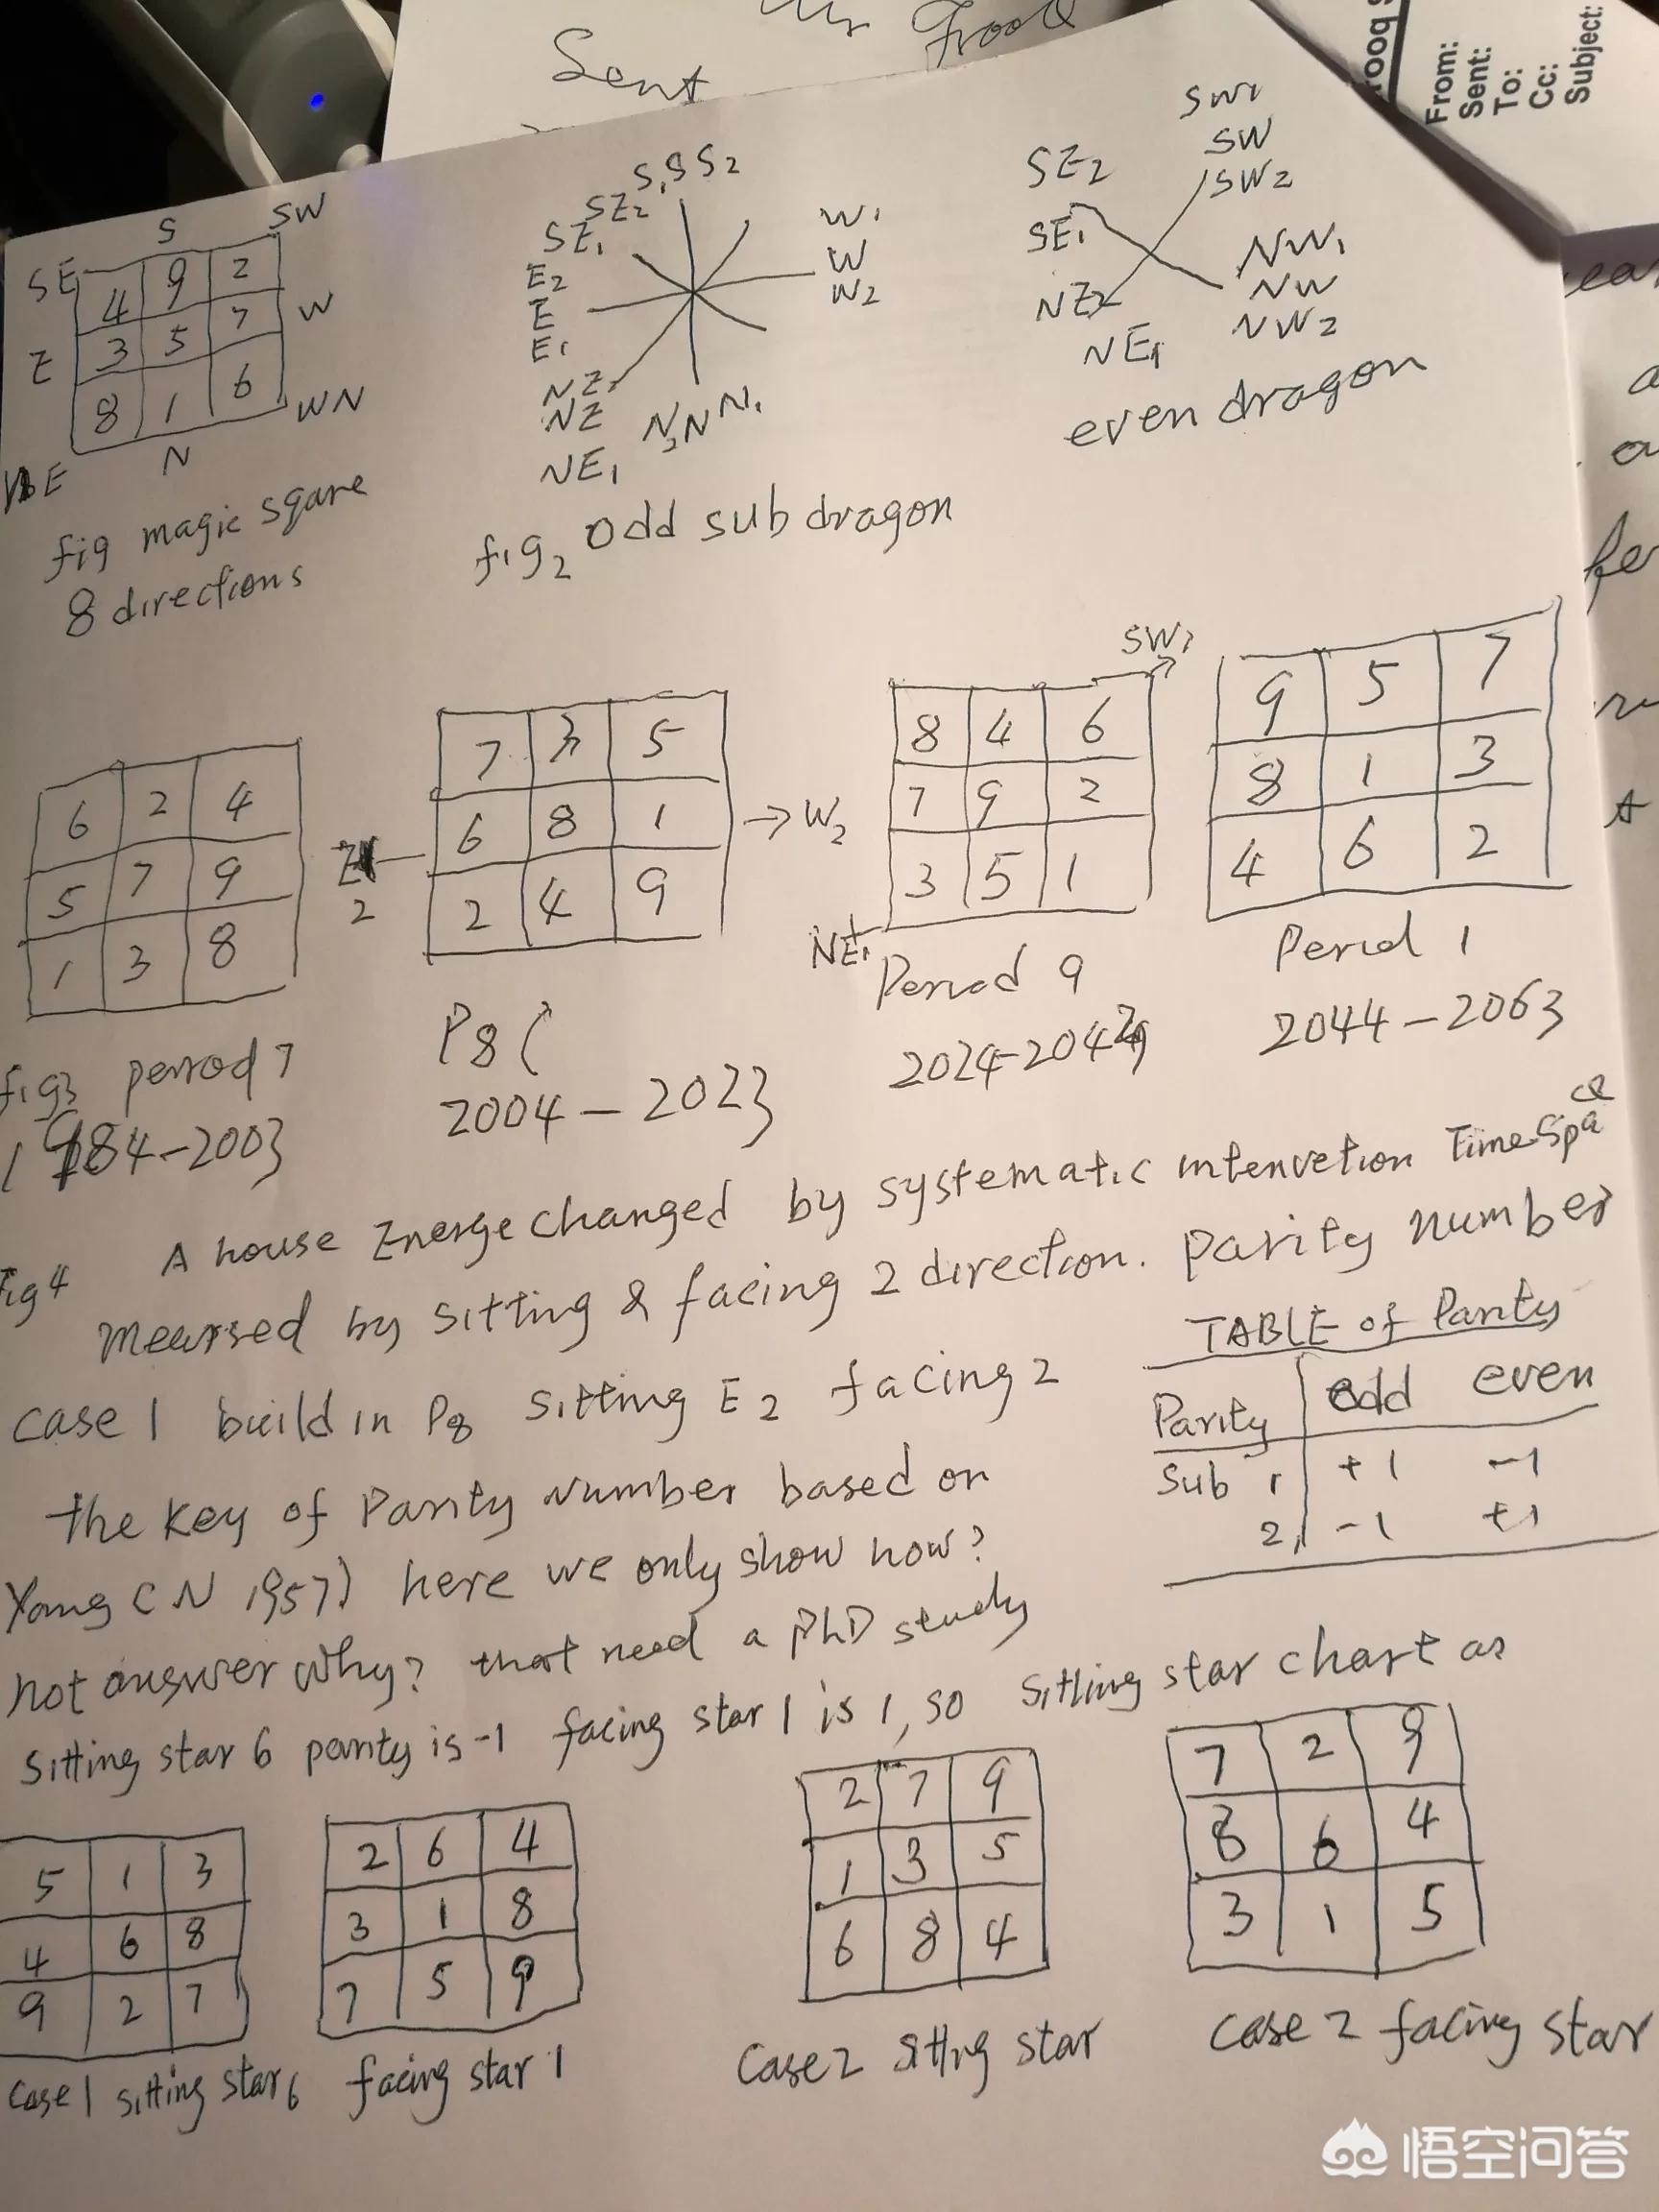 Sent
From:
Sent:
To:
Cc:
Subject:
S SW
SE 4 9 2
E 3 5 7 W
8 1 6 WN
N
fig magic sqare
8 directions
S1 S S2
SE2
SE1
E2
E
E1
W1
W
W2
NE
NE1
N2 N N1
fig2 odd sub dragon
SE2
SE1
SW1
SW
SW2
NW1
NW
NW2
NE2
NE1
even dragon
6 2 4
5 7 9
1 3 8
fig3 period 7
1984-2003
7 3 5
6 8 1
2 4 9
2
→ W2
P8 (
2004 - 2023
SW1
8 4 6
7 9 2
3 5 1
NE1
Period 9
9 5 7
8 1 3
4 6 2
Period 1
2044 - 2063
fig 4 A house Energe changed by systematic intenvetion Time Space
mearsed by sitting & facing 2 direction. parity number
case 1 build in P8 sitting E2 facing 2
TABLE of Parity
Parity odd even
Sub 1 +1 -1
2 -1 +1
the key of Parity Number based on
Yang C N 1957) here we only show how?
not answer why? that need a PhD study
sitting star 6 parity is -1 facing star 1 is 1, so sitting star chart as
5 1 3
4 6 8
9 2 7
case 1 sitting star 6
2 6 4
3 1 8
7 5 9
facing star 1
2 7 9
1 3 5
6 8 4
Case 2 sittng star
7 2 9
8 6 4
3 1 5
case 2 facing star
悟空问答